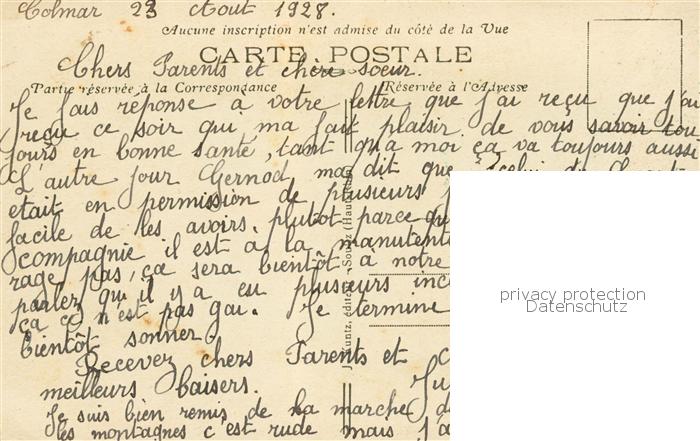 Colmar 23 Aout 1928.
Aucune inscription n'est admise du côté de la Vue
CARTE POSTALE
Chers Parents et chère soeur.
Partie réservée à la Correspondance
Réservée à l'Adresse
Je fais réponse à votre lettre que j'ai reçu que j'ai
reçu ce soir qui ma fait plaisir de vous savoir tou
jours en bonne santé, tant qu'a moi ça va toujours aussi
L'autre jour Gernod ma dit que celui de
etait en permission de plusieurs
facile de les avoirs. plutot parce qu
compagnie il est a la manutent
rage pas, ça sera bientot à notre
parlez qu'il y a eu plusieurs inc
ça ce n'est pas gai. Je termine
bientôt sonner.
Recevez chers Parents et c
meilleurs baisers.
Ju
Je suis bien remis de la marche d
les montagnes c'est rude mais j'a
J. Kuntz, édite Soultz (Haut
privacy protection
Datenschutz